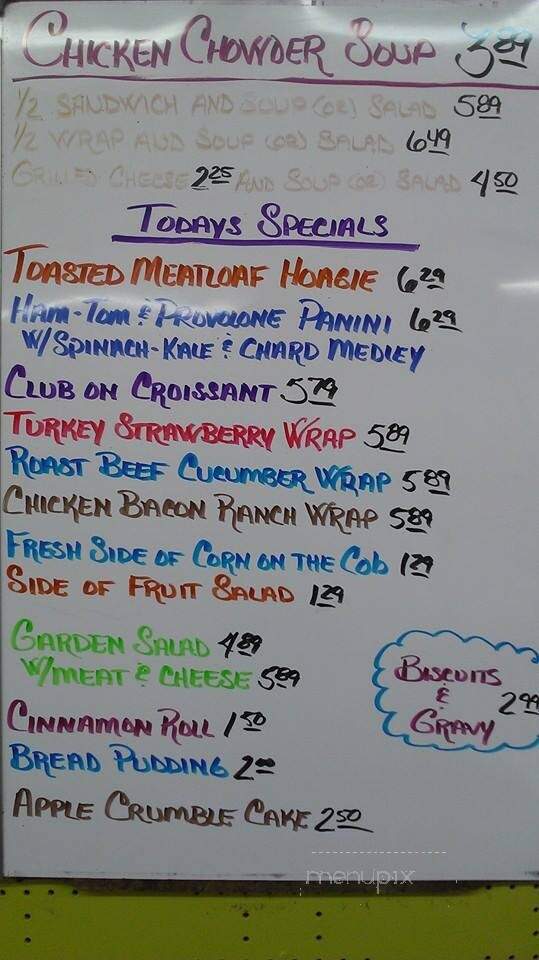 CHICKEN CHOWDER SOUP 3.89
1/2 SANDWICH AND SOUP (OR) SALAD 5.89
1/2 WRAP AND SOUP (OR) SALAD 6.49
GRILLED CHEESE 2.25 AND SOUP (OR) SALAD 4.50
TODAYS SPECIALS
TOASTED MEATLOAF HOAGIE 6.29
HAM-TOM & PROVOLONE PANINI 6.29
W/SPINACH-KALE & CHARD MEDLEY
CLUB ON CROISSANT 5.79
TURKEY STRAWBERRY WRAP 5.89
ROAST BEEF CUCUMBER WRAP 5.89
CHICKEN BACON RANCH WRAP 5.89
FRESH SIDE OF CORN ON THE COB 1.29
SIDE OF FRUIT SALAD 1.29
GARDEN SALAD 4.89
W/MEAT & CHEESE 5.89
BISCUITS
&
GRAVY 2.99
CINNAMON ROLL 1.50
BREAD PUDDING 2.00
APPLE CRUMBLE CAKE 2.50
menupix